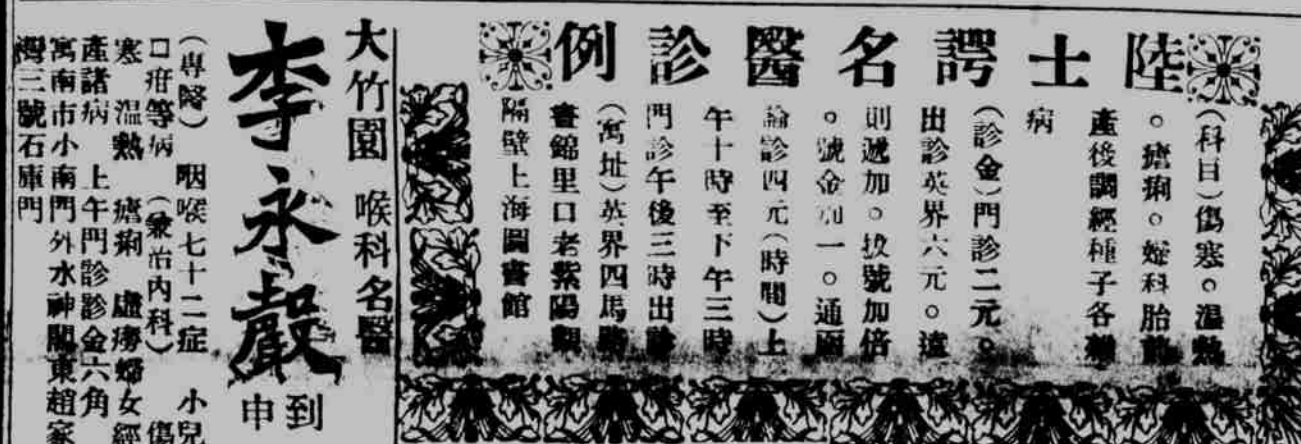 陸士諤名醫診例
(科目)傷寒。温熱
。瘧痢。婦科胎前
產後調經種子各雜
病
(診金)門診二元。
出診英界六元。遠
則遞加。拔號加倍
。號金加一。通函
論診四元(時間)上
午十時至下午三時
門診午後三時出診
(寓址)英界四馬路
晝錦里口老紫陽觀
隔壁上海圖書館
大竹園 喉科名醫
李永聲
到申
(專醫) 咽喉七十二症 小兒
口疳等病 (兼治內科) 傷
寒 温熱 瘧痢 虛癆婦女經
產諸病 上午門診診金六角
寓南市小南門外水神閣東趙家
灣三號石庫門